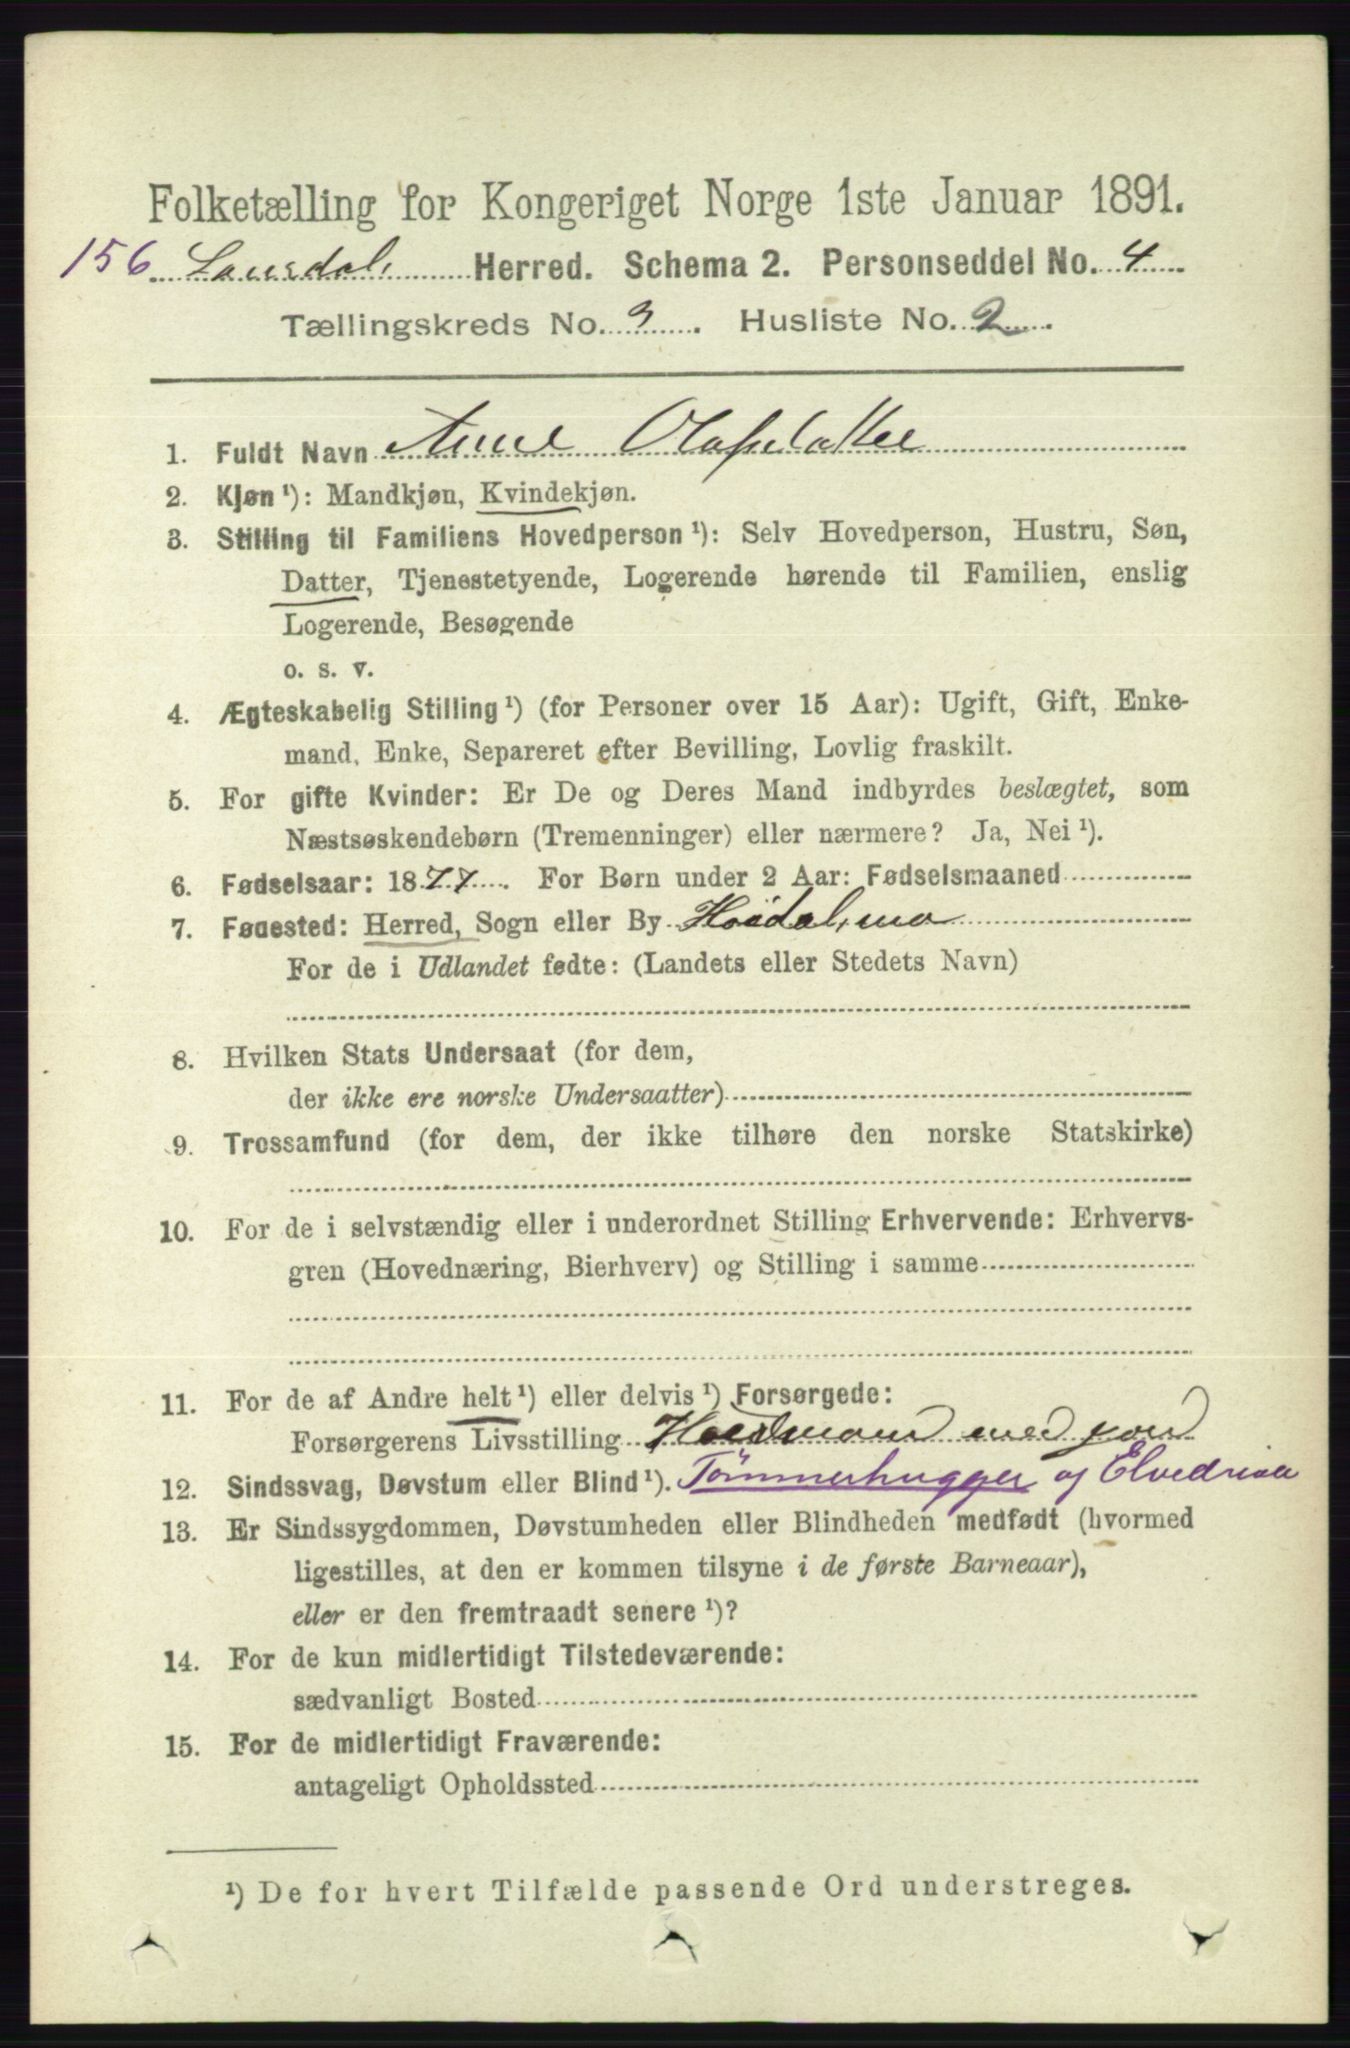 Folketælling for Kongeriget Norge 1ste Januar 1891.
156 Laurdal Herred. Schema 2. Personseddel No. 4
Tællingskreds No. 3. Husliste No. 2.
1. Fuldt Navn Anne Olafsdatter
2. Kjøn ¹): Mandkjøn, Kvindekjøn.
3. Stilling til Familiens Hovedperson ¹): Selv Hovedperson, Hustru, Søn,
Datter, Tjenestetyende, Logerende hørende til Familien, enslig
Logerende, Besøgende
o. s. v.
4. Ægteskabelig Stilling ¹) (for Personer over 15 Aar): Ugift, Gift, Enke-
mand, Enke, Separeret efter Bevilling, Lovlig fraskilt.
5. For gifte Kvinder: Er De og Deres Mand indbyrdes beslægtet, som
Næstsøskendebørn (Tremenninger) eller nærmere? Ja, Nei ¹).
6. Fødselsaar: 1877. For Børn under 2 Aar: Fødselsmaaned
7. Fødested: Herred, Sogn eller By Hoidalsmo
For de i Udlandet fødte: (Landets eller Stedets Navn)
8. Hvilken Stats Undersaat (for dem,
der ikke ere norske Undersaatter)
9. Trossamfund (for dem, der ikke tilhøre den norske Statskirke)
10. For de i selvstændig eller i underordnet Stilling Erhvervende: Erhvervs-
gren (Hovednæring, Bierhverv) og Stilling i samme
11. For de af Andre helt ¹) eller delvis ¹) Forsørgede:
Forsørgerens Livsstilling Husmand med jord
12. Sindssvag, Døvstum eller Blind ¹). Tømmerhugger og Elvedriver
13. Er Sindssygdommen, Døvstumheden eller Blindheden medfødt (hvormed
ligestilles, at den er kommen tilsyne i de første Barneaar),
eller er den fremtraadt senere ¹)?
14. For de kun midlertidigt Tilstedeværende:
sædvanligt Bosted
15. For de midlertidigt Fraværende:
antageligt Opholdssted
¹) De for hvert Tilfælde passende Ord understreges.